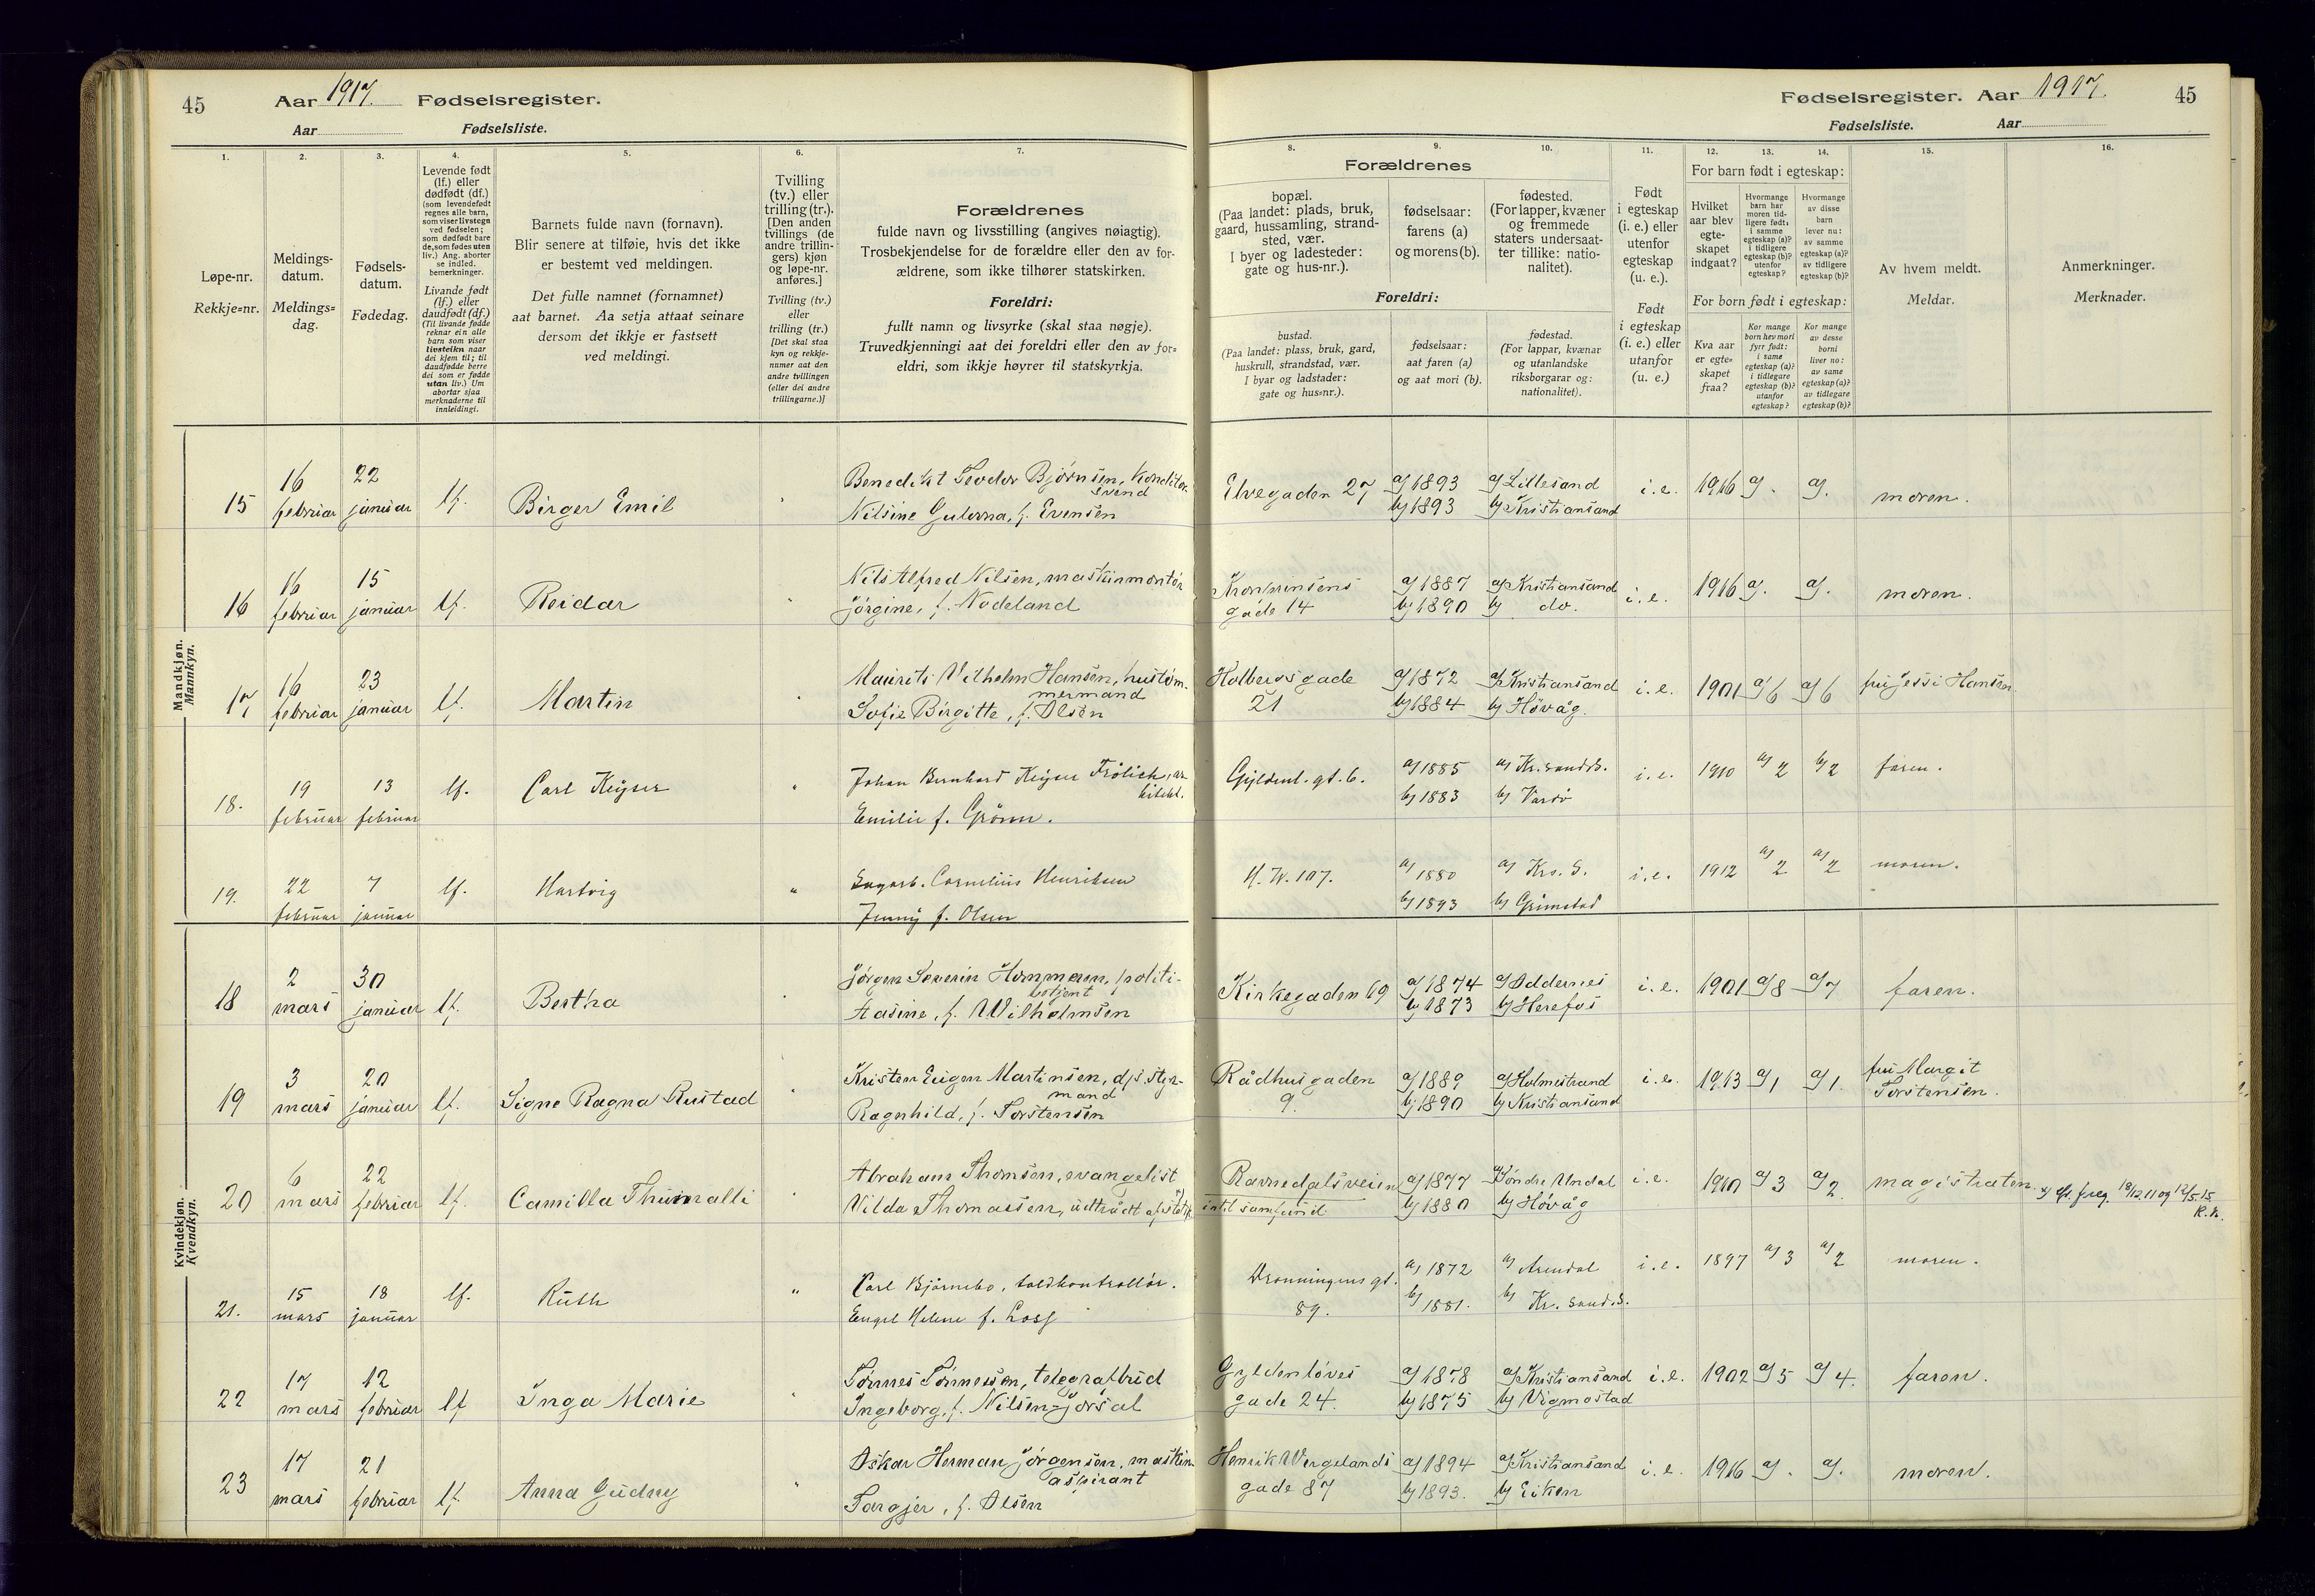 45 Aar 1917. Fødselsregister.
Aar Fødselsliste.
Fødselsregister. Aar 1917. 45
Fødselsliste. Aar
1. 2. 3. 4. 5. 6. 7.
Løpe-nr.
Rekkje-nr.
Meldings-
datum.
Meldings-
dag.
Fødsels-
datum.
Fødedag.
Levende født
(lf.) eller
dødfødt (df.)
(som levendefødt
regnes alle barn,
som viser livstegn
ved fødselen;
som dødfødt bare
de, som fødes uten
liv.) Ang. aborter
se indled.
bemerkninger.
Livande født
(lf.) eller
daudfødt (df.)
(Til livande fødde
reknar ein alle
born som viser
livsteikn naar
dei kjem til; til
daudfødde berre
dei som er fødde
utan liv.) Um
abortar sjaa
merknaderne til
innleidingi.
Barnets fulde navn (fornavn).
Blir senere at tilføie, hvis det ikke
er bestemt ved meldingen.
Det fulle namnet (fornamnet)
aat barnet. Aa setja attaat seinare
dersom det ikkje er fastsett
ved meldingi.
Tvilling
(tv.) eller
trilling (tr.).
[Den anden
tvillings (de
andre trillin-
gers) kjøn
og løpe-nr.
anføres.]
Tvilling (tv.)
eller
trilling (tr.)
[Det skal staa
kyn og rekkje-
numer aat den
andre tvillingen
(eller dei andre
trillingarne.)]
Forældrenes
fulde navn og livsstilling (angives nøiagtig).
Trosbekjendelse for de forældre eller den av for-
ældrene, som ikke tilhører statskirken.
Foreldri:
fullt namn og livsyrke (skal staa nøgje).
Truvedkjenningi aat dei foreldri eller den av for-
eldri, som ikkje høyrer til statskyrkja.
8. 9. 10. 11. 12. 13. 14. 15. 16.
Forældrenes
bopæl.
(Paa landet: plads, bruk,
gaard, hussamling, strand-
sted, vær.
I byer og ladesteder:
gate og hus-nr.).
fødselsaar:
farens (a)
og morens (b).
fødested.
(For lapper, kvæner
og fremmede
staters undersaat-
ter tillike: natio-
nalitet).
Foreldri:
bustad.
(Paa landet: plass, bruk, gard,
huskrull, strandstad, vær.
I byar og ladstader:
gate og hus-nr.).
fødselsaar:
aat faren (a)
og aat mori (b).
fødestad.
(For lappar, kvænar
og utanlandske
riksborgarar og:
nationalitet).
Født
i egteskap
(i. e.) eller
utenfor
egteskap
(u. e.).
Født
i egteskap
(i. e.) eller
utanfor
(u. e.)
For barn født i egteskap:
Hvilket
aar blev
egte-
skapet
indgaat?
Hvormange
barn har
moren tid-
ligere født,
i samme
egteskap (a)?
i tidligere
egteskap (b)?
utenfor
egteskap?
Hvormange
av disse
barn
lever nu:
av samme
egteskap (a)?
av tidligere
egteskap (b)?
For born født i egteskap:
Kva aar
er egte-
skapet
fraa?
Kor mange
born hev mori
fyrr født:
i same
egteskap (a)?
i tidlegare
egteskap (b)?
utanfor
egteskap?
Kor mange
av desse
borni
liver no:
av same
egteskap (a)?
av tidlegare
egteskap (b)?
Av hvem meldt.
Meldar.
Anmerkninger.
Merknader.
Mandkjøn.
Mannkyn.
15 16 februar 22 januar lf. Birger Emil Benedikt Teodor Bjørnsen, konditor
svend
Nilsine Gulovna, f. Evensen Elvegaden 27 a/ 1893 a/ Lillesand i. e. 1916 a/. a/. moren.
b/ 1893 b/ Kristiansand
16 16 februar 15 januar lf. Reidar Nils Alfred Nilsen, maskinmontør
Jørgine, f. Nodeland Kronprinsens
gade 14 a/ 1887 a/ Kristiansand i. e. 1916 a/. a/. moren.
b/ 1890 b/ do.
17 16 februar 23 januar lf. Martin Maurits Vilhelm Hansen, hustøm-
mermand
Sofie Birgitte, f. Olsen Holbergsgade
21 a/ 1872 a/ Kristiansand i. e. 1901 a/ 6 a/ 6 fru Jessi Hansen
b/ 1884 b/ Høvåg.
18. 19 februar 13 februar lf. Carl Keyser " Johan Bernhard Keyser Frølich, ar-
kitekt.
Emilie f. Grønn. Gyldenl. gt. 6. a/ 1885 a/ Kr.sand S. i. e. 1910 a/ 2 b/ 2 faren.
b/ 1883 b/ Vardø
19. 22 februar 7 januar lf. Hartvig " Sagarb. Cornelius Henriksen
Jenny f. Olsen H. W. 107. a/ 1880 a/ Krs. S. i. e. 1912 a/ 2 a/ 2 moren.
b/ 1893 b/ Grimstad
Kvindekjøn.
Kvendkyn.
18 2 mars 30 januar lf. Bertha Jørgen Severin Hommem, politi-
betjent
Aasine, f. Wilhelmsen Kirkegaden 69 a/ 1874 a/ Oddernes i. e. 1901 a/ 8 a/ 7 faren.
b/ 1873 b/ Herefos
19 3 mars 20 januar lf. Signe Ragna Rustad Kristen Eugen Martinsen, d/s. styr-
mand
Ragnhild, f. Torstensen Rådhusgaden
9. a/ 1889 a/ Holmestrand i. e. 1913 a/ 1 a/ 1. fru Margit
Torstensen.
b/ 1890 b/ Kristiansand
20 6 mars 22 februar lf. Camilla Abraham Thomsen, evangelist
Vilda Thomassen, Ravnedalsveien a/ 1877 a/ Søndre Undal i. e. 1910 a/ 3 a/ 2. magistraten.
b/ 1880 b/ Høvåg
R.K.
21. 15 mars 18 januar lf. Ruth " Carl Bjørnebo, toldkontrollør.
Engel Helene f. Lossj Dronningens gt.
89. a/ 1872 a/ Arendal i. e. 1897 a/ 3 a/ 2 moren.
b/ 1881. b/ Kr. sand. S.
22 17 mars 12 februar lf Inga Marie Tønnes Tønnessen, telegrafbud
Ingeborg, f. Nilsen-Jørsal Gyldenløves
gade 24. a/ 1878 a/ Kristiansand i. e. 1902 a/ 5 a/ 4. faren.
b/ 1875 b/ Vigmostad
23 17 mars 21 februar lf. Anna Gudny Oskar Herman Jørgensen, maskin
aspirant
Torgjer, f. Olsen Henrik Wergelands
gade 87 a/ 1894 a/ Kristiansand i. e. 1916 a/. a/. moren.
b/ 1893. b/ Eiken